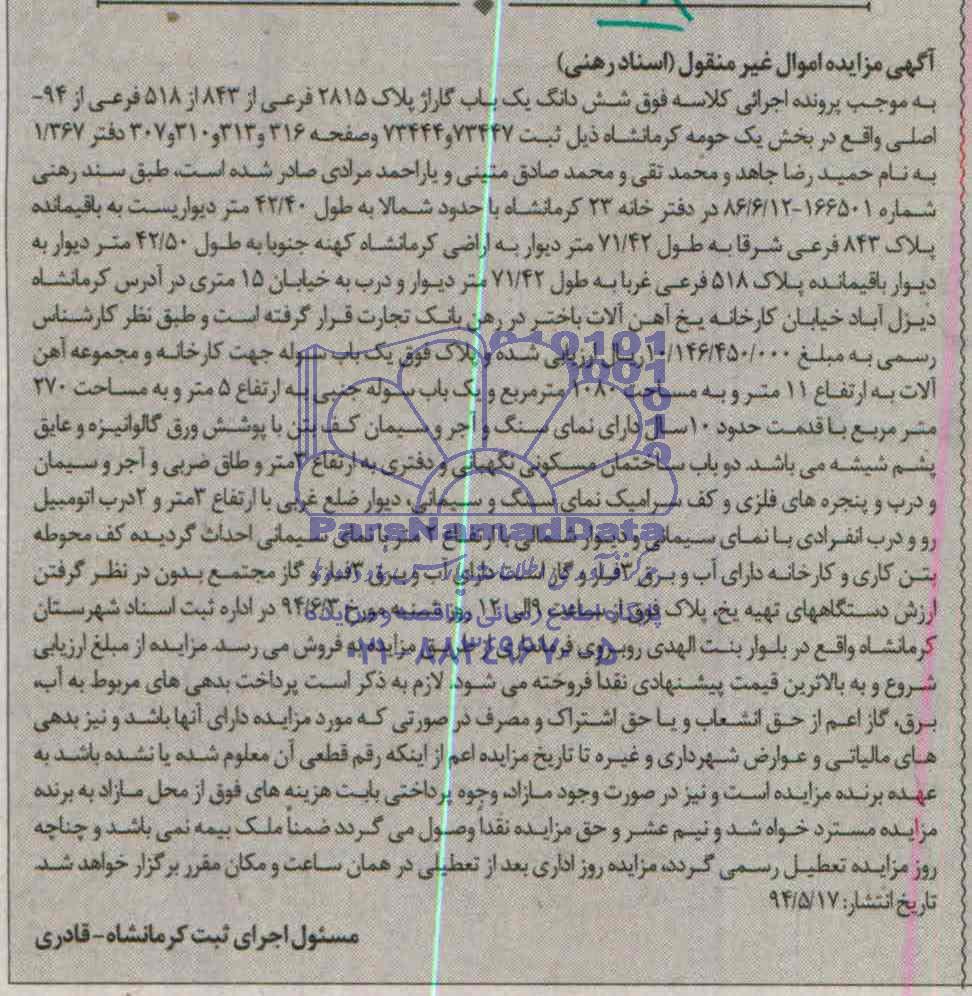 آگهی مزایده اموال غیر منقول (اسناد رهنی)
به موجب پرونده اجرائی کلاسه فوق شش دانگ یک باب گاراژ پلاک ۲۸۱۵ فرعی از ۸۴۳ از ۵۱۸ فرعی از ۹۴-
اصلی واقع در بخش یک حومه کرمانشاه ذیل ثبت ۷۳۴۴۷و۷۳۴۴۴ وصفحه ۳۱۶ و۳۱۳و۳۱۰و۳۰۷ دفتر ۱/۳۶۷
به نام حمید رضا جاهد و محمد تقی و محمد صادق متینی و یاراحمد مرادی صادر شده است، طبق سند رهنی
شماره ۱۶۶۵۰۱-۸۶/۶/۱۲ در دفتر خانه ۲۳ کرمانشاه با حدود شمالا به طول ۴۲/۴۰ متر دیواریست به باقیمانده
پلاک ۸۴۳ فرعی شرقا به طول ۷۱/۴۲ متر دیوار به اراضی کرمانشاه کهنه جنوبا به طول ۴۲/۵۰ متر دیوار به
دیوار باقیمانده پلاک ۵۱۸ فرعی غربا به طول ۷۱/۴۲ متر دیوار و درب به خیابان ۱۵ متری در آدرس کرمانشاه
دیزل آباد خیابان کارخانه یخ آهن آلات باختر در رهن بانک تجارت قرار گرفته است و طبق نظر کارشناس
رسمی به مبلغ ۱۰/۱۴۶/۴۵۰/۰۰۰ ریال ارزیابی شده و پلاک فوق یک باب سوله جهت کارخانه و مجموعه آهن
آلات به ارتفاع ۱۱ متر و به مساحت ۱۰۸۰ مترمربع و یک باب سوله جنبی به ارتفاع ۵ متر و به مساحت ۲۷۰
متر مربع با قدمت حدود ۱۰سال دارای نمای سنگ و آجر و سیمان کف بتن با پوشش ورق گالوانیزه و عایق
پشم شیشه می باشد. دو باب ساختمان مسکونی نگهبانی و دفتری به ارتفاع ۳متر و طاق ضربی و آجر و سیمان
و درب و پنجره های فلزی و کف سرامیک نمای سنگ و سیمانی، دیوار ضلع غربی با ارتفاع ۳متر و ۲درب اتومبیل
رو و درب انفرادی با نمای سیمانی و دیوار شمالی با ارتفاع ۲ متر با نمای سیمانی احداث گردیده کف محوطه
بتن کاری و کارخانه دارای آب و برق ۳فاز و گاز است دارای آب و برق ۳فاز و گاز مجتمع بدون در نظر گرفتن
ارزش دستگاههای تهیه یخ، پلاک فوق از ساعت ۹الی ۱۲ روز شنبه مورخ ۹۴/۶/۳ در اداره ثبت اسناد شهرستان
کرمانشاه واقع در بلوار بنت الهدی روبروی فرمانداری از طریق مزایده به فروش می رسد. مزایده از مبلغ ارزیابی
شروع و به بالاترین قیمت پیشنهادی نقدا فروخته می شود. لازم به ذکر است پرداخت بدهی های مربوط به آب،
برق، گاز اعم از حق انشعاب و یا حق اشتراک و مصرف در صورتی که مورد مزایده دارای آنها باشد و نیز بدهی
های مالیاتی و عوارض شهرداری و غیره تا تاریخ مزایده اعم از اینکه رقم قطعی آن معلوم شده یا نشده باشد به
عهده برنده مزایده است و نیز در صورت وجود مازاد، وجوه پرداختی بابت هزینه های فوق از محل مازاد به برنده
مزایده مسترد خواه شد و نیم عشر و حق مزایده نقداً وصول می گردد ضمناً ملک بیمه نمی باشد و چناچه
روز مزایده تعطیل رسمی گردد، مزایده روز اداری بعد از تعطیلی در همان ساعت و مکان مقرر برگزار خواهد شد.
تاریخ انتشار: ۹۴/۵/۱۷
مسئول اجرای ثبت کرمانشاه- قادری
ParsNamadData
پایگاه اطلاع رسانی مناقصه و مزایده
۰۲۱-۸۸۳۴۹۶۷۰-۵